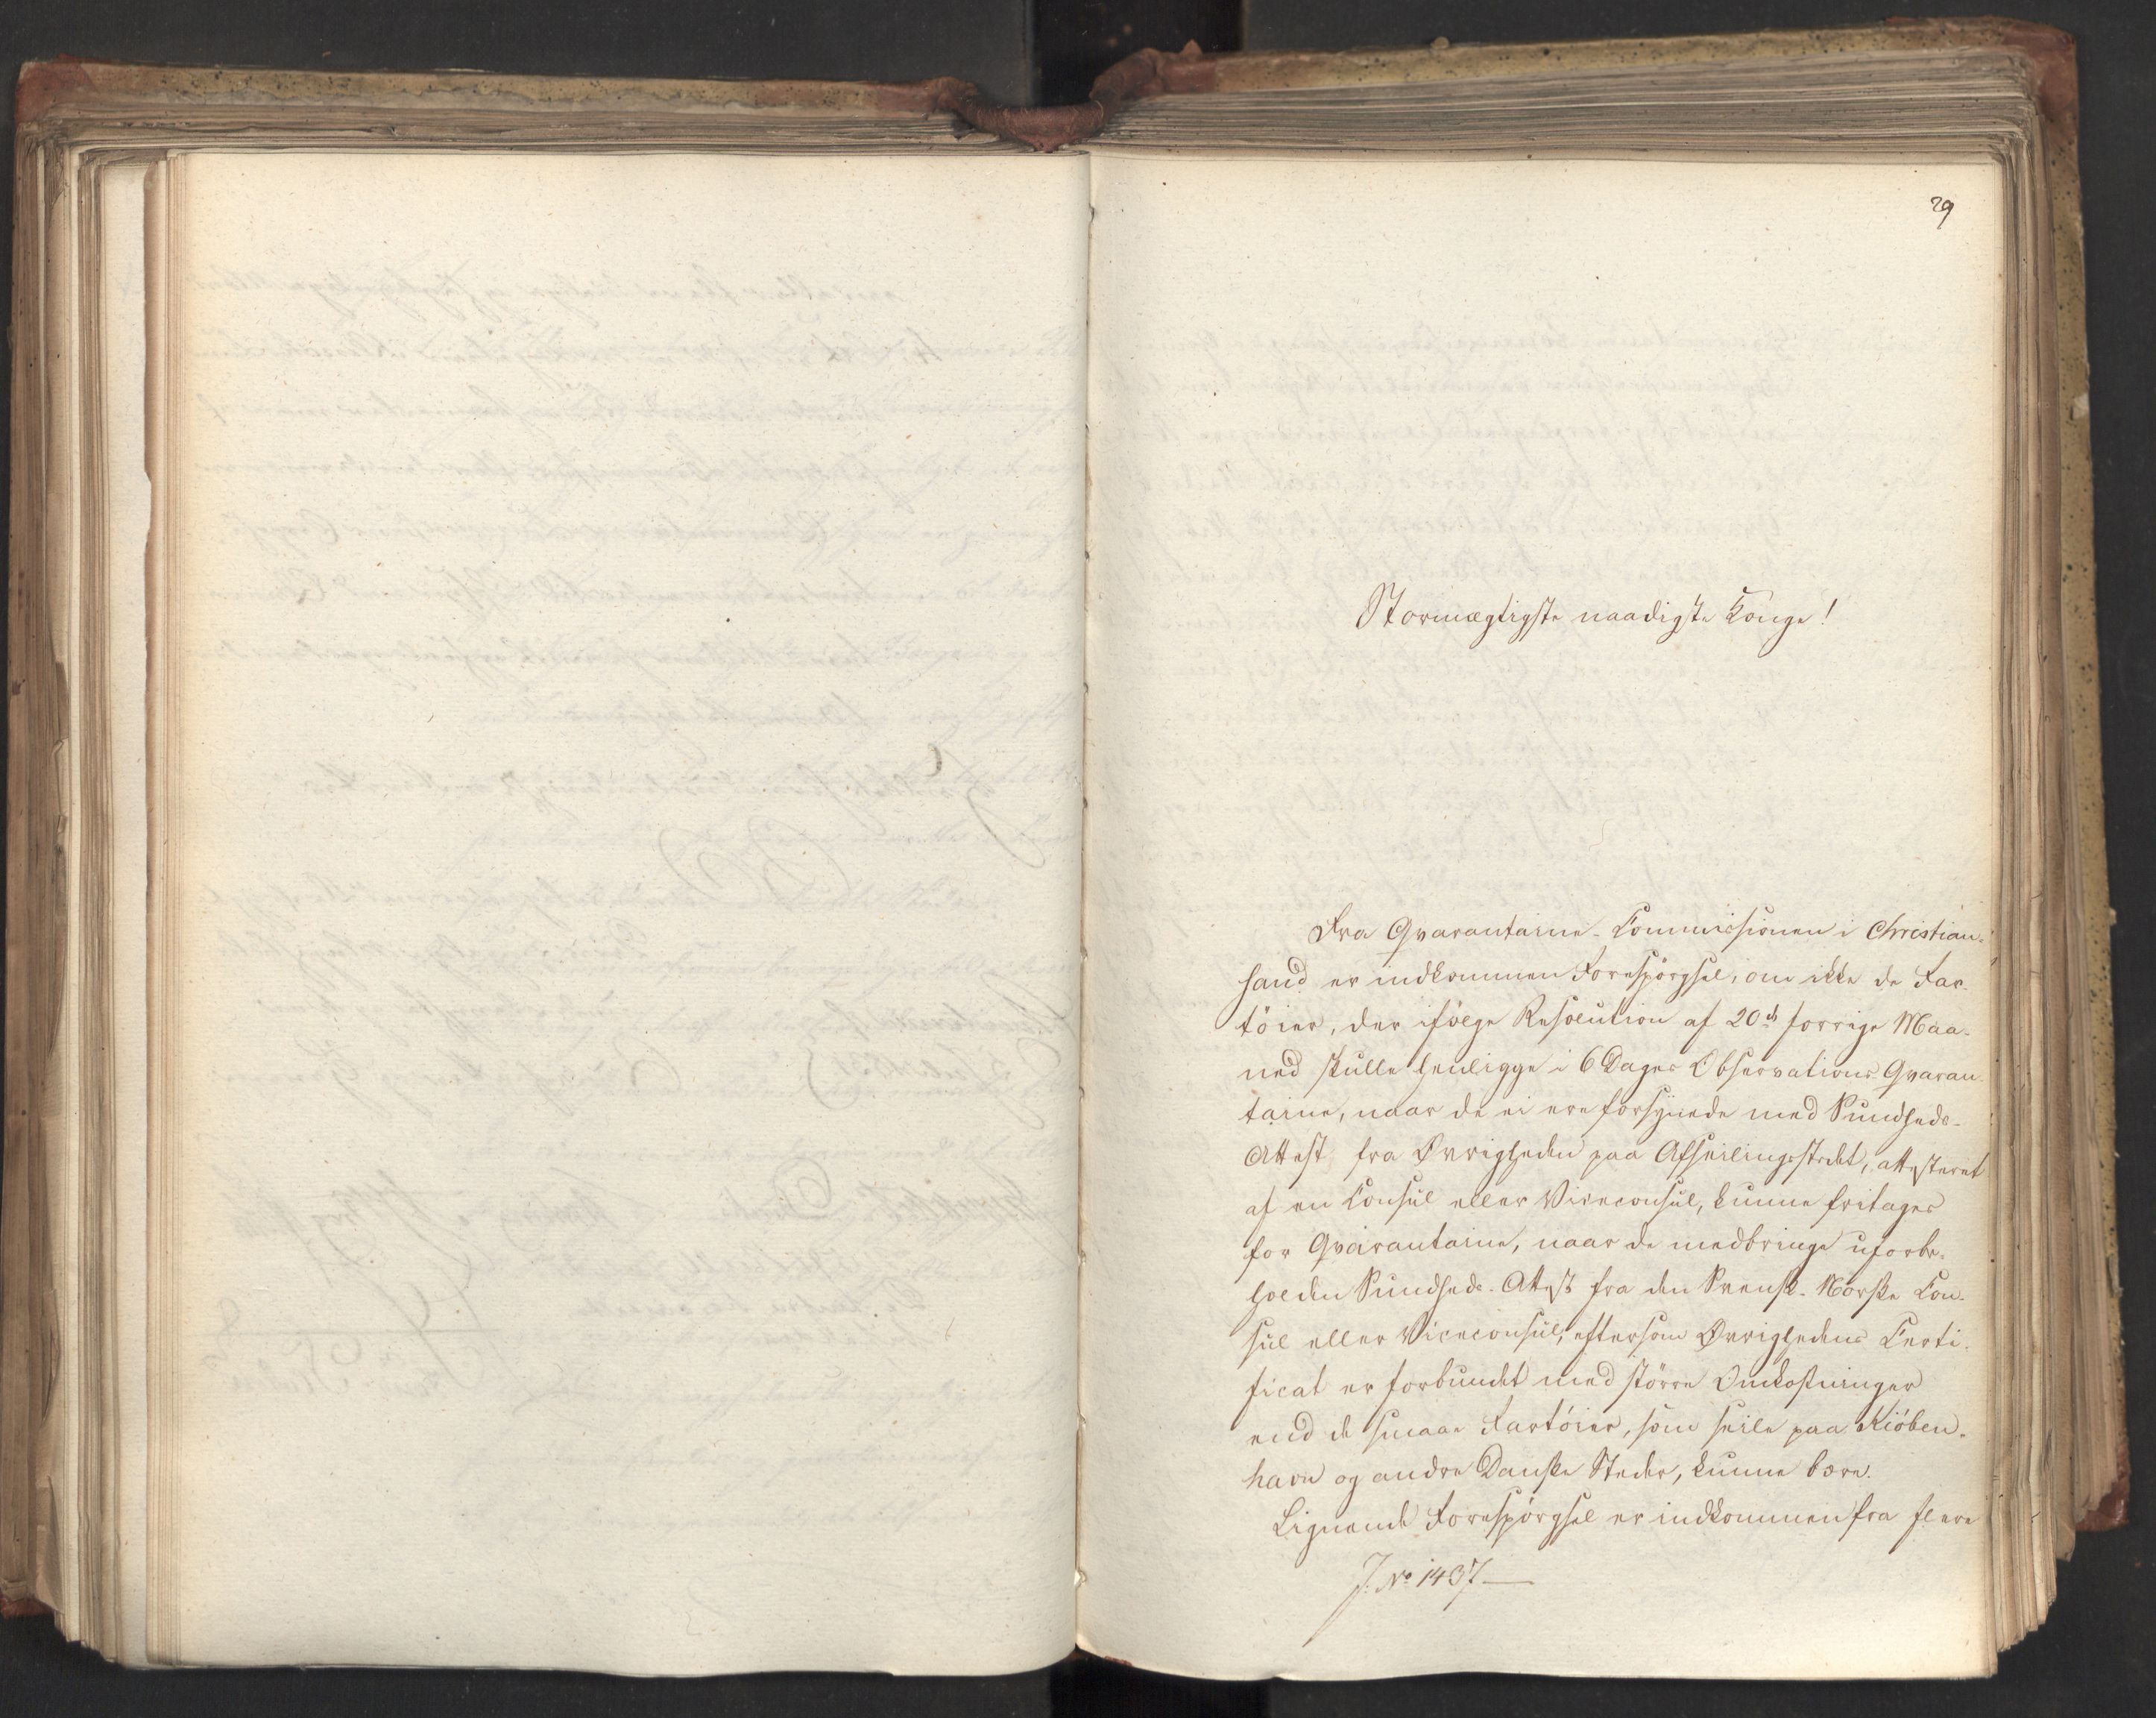 29
Stormægtigste naadigste Konge!
Fra Qvarantaine-Commissionen i Christian-
sand er indkommen Forespørgsel, om ikke de Far-
töier, der ifølge Resolution af 20de forrige Maa-
ned skulle henligge i 6 Dages Observations Qvaran-
taine, naar de ei ere forsynede med Sundheds-
Attest fra Øvrigheden paa Afseilingsstedet, attesteret
af en Consul eller Viceconsul, kunne fritages
for Qvarantaine, naar de medbringe uforbe-
holden Sundheds-Attest fra den Svensk-Norske Con-
sul eller Viceconsul, eftersom Øvrighedens Certi-
ficat er forbundet med större Omkostninger
end de smaae Fartöier, som seile paa Kiöben-
havn og andre Danske Steder, kunne bære.
Lignende Forespörgsel er indkommen fra flere
J. No 1437